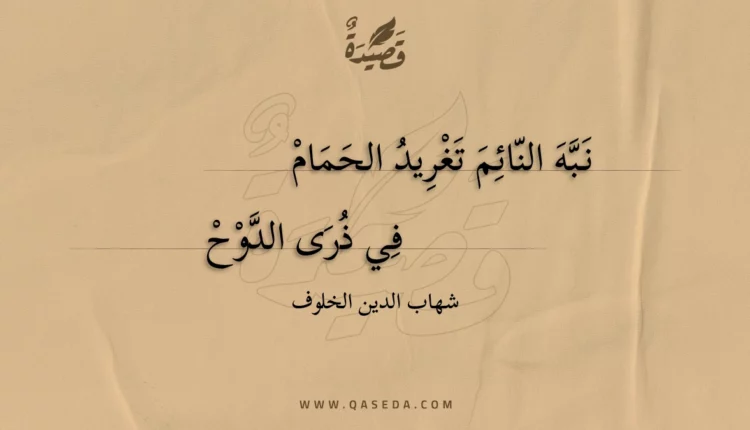 قَصِيدَةٌ
نَبَّهَ النّائِمَ تَغْرِيدُ الحَمَامْ
فِي ذُرَى الدَّوْحْ
شهاب الدين الخلوف
WWW.QASEDA.COM